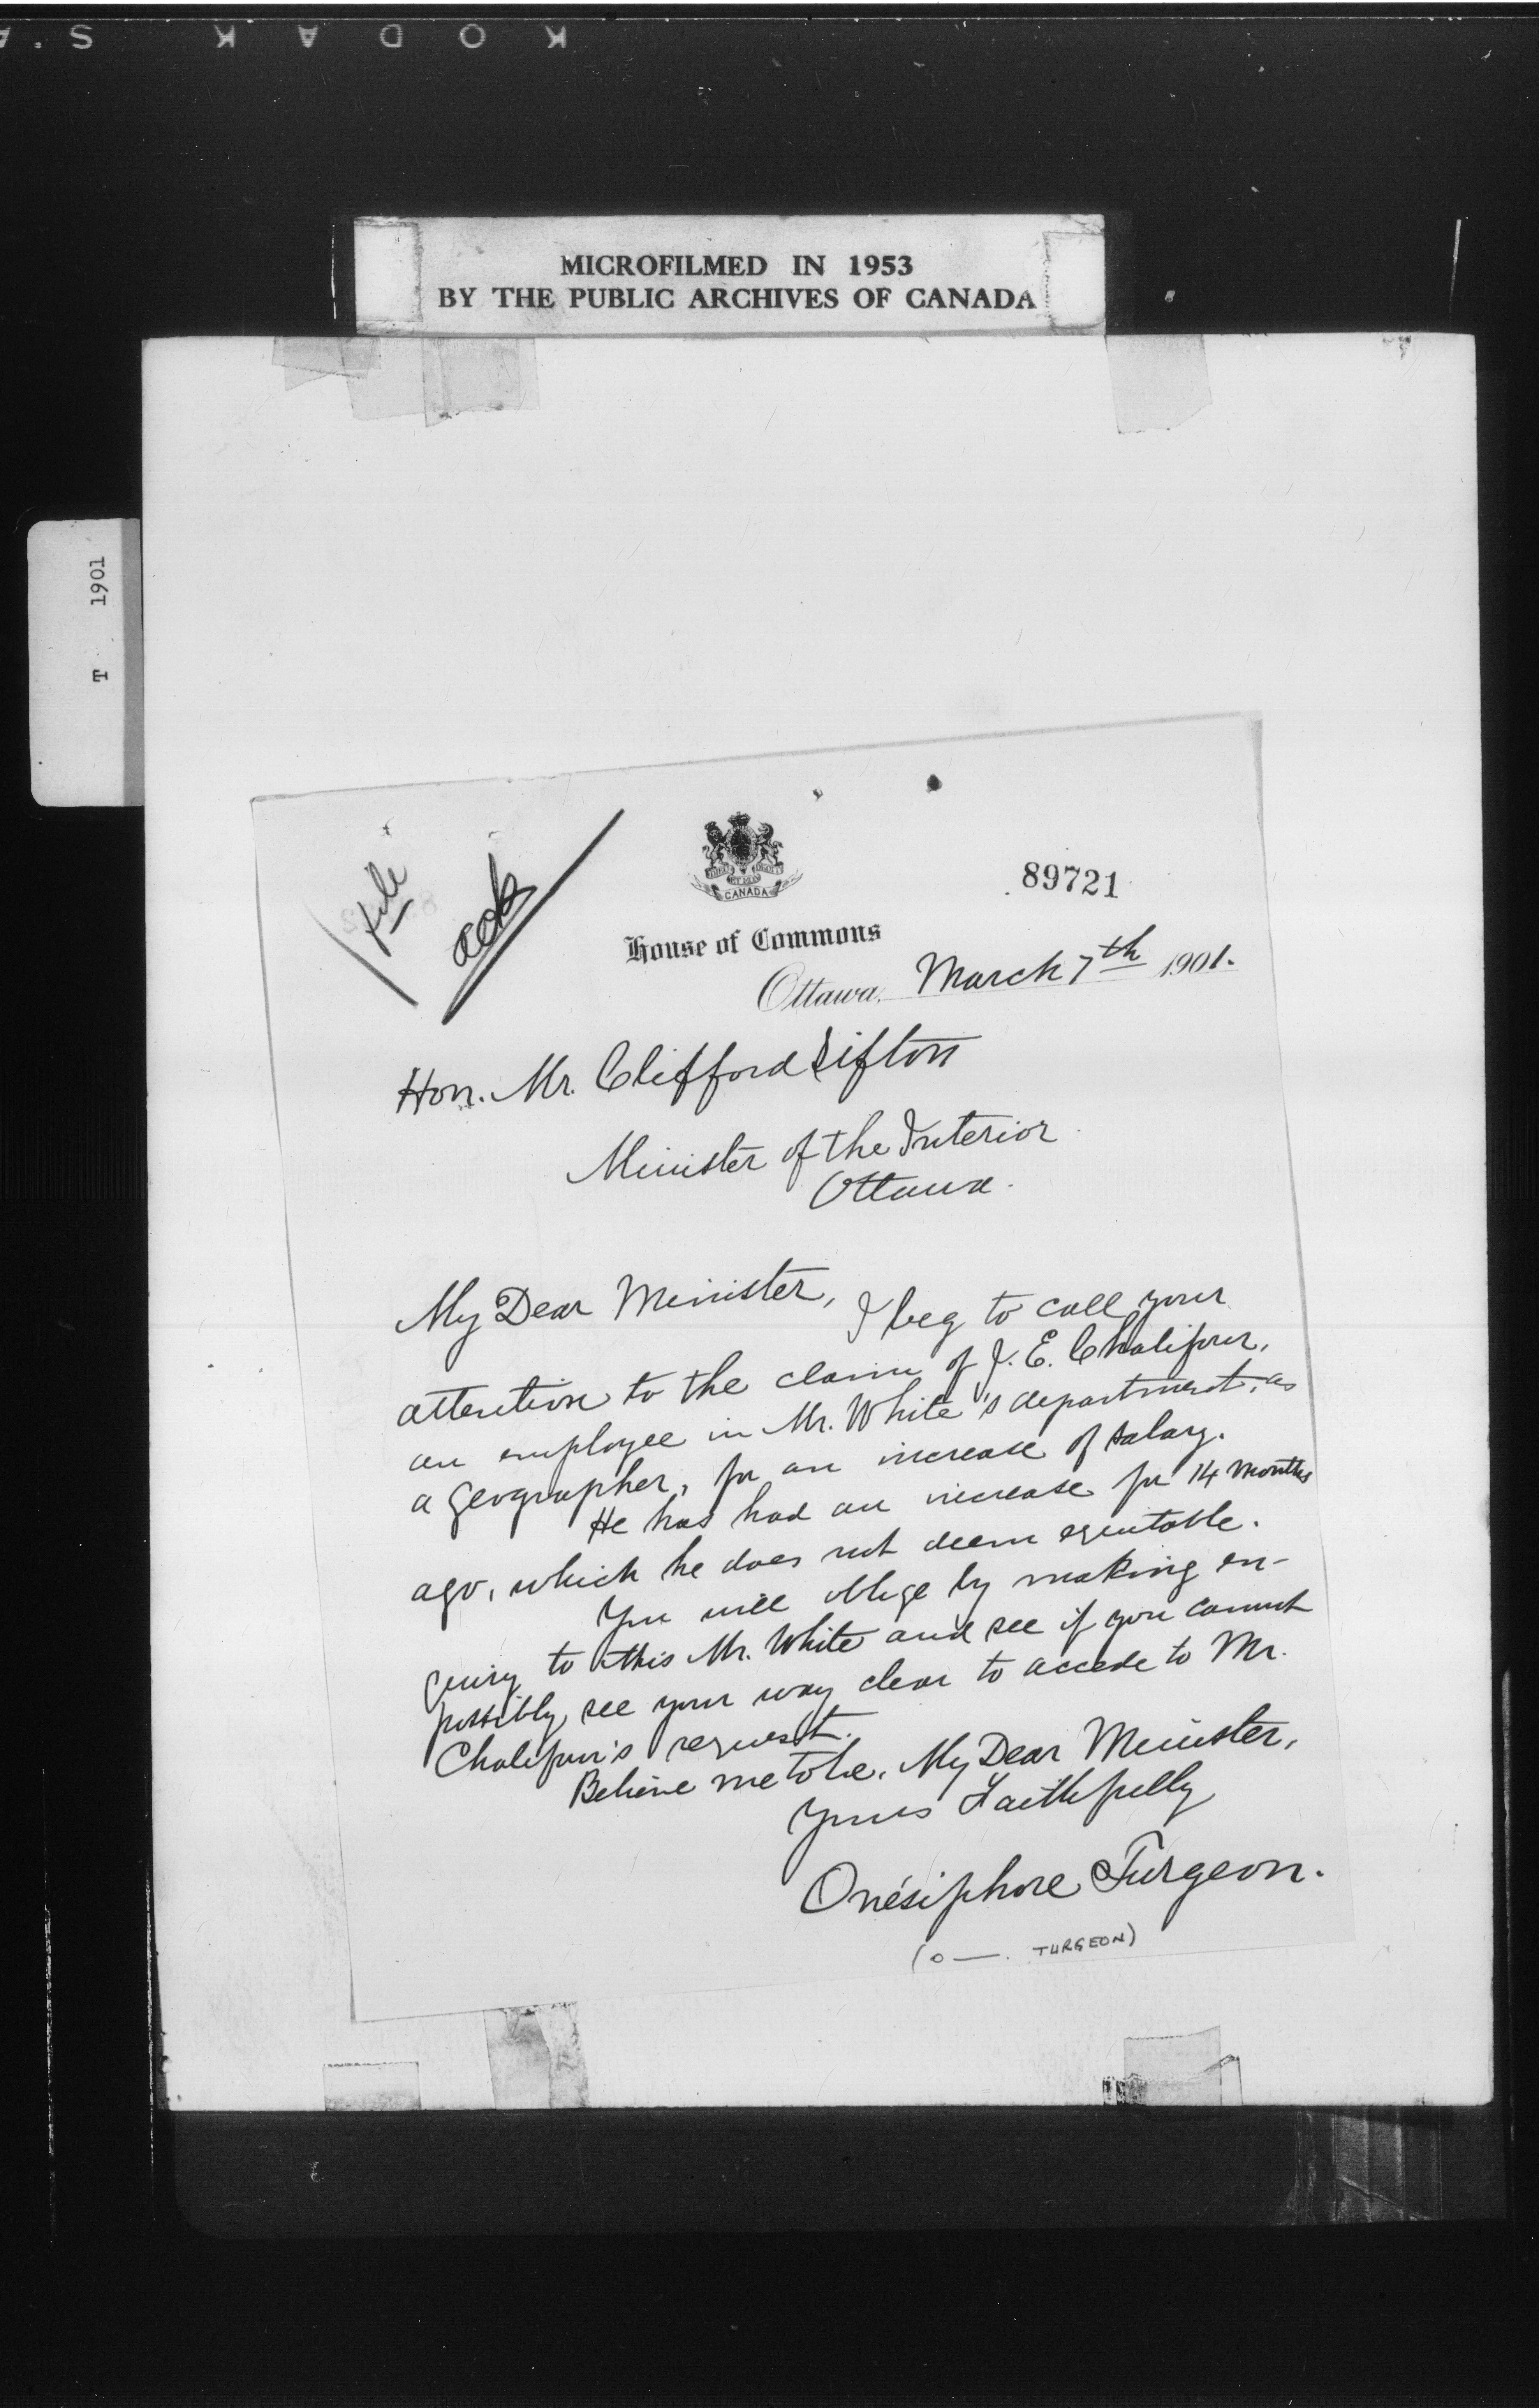 KODAK S.A
MICROFILMED IN 1953
BY THE PUBLIC ARCHIVES OF CANADA
T 1901
file
ack
CANADA
89721
House of Commons
Ottawa, March 7th 1901.
Hon. Mr. Clifford Sifton
Minister of the Interior
Ottawa.
My Dear Minister,
I beg to call your
attention to the claim of J. E. Chalifour,
an employee in Mr. White's department, as
a geographer, for an increase of salary.
He has had an increase for 14 months
ago, which he does not deem equitable.
You will oblige by making en-
quiry to this Mr. White and see if you cannot
possibly see your way clear to accede to Mr.
Chalifour's request.
Believe me to be, My Dear Minister,
Yours Faithfully
Onésiphore Turgeon.
(O —. TURGEON)